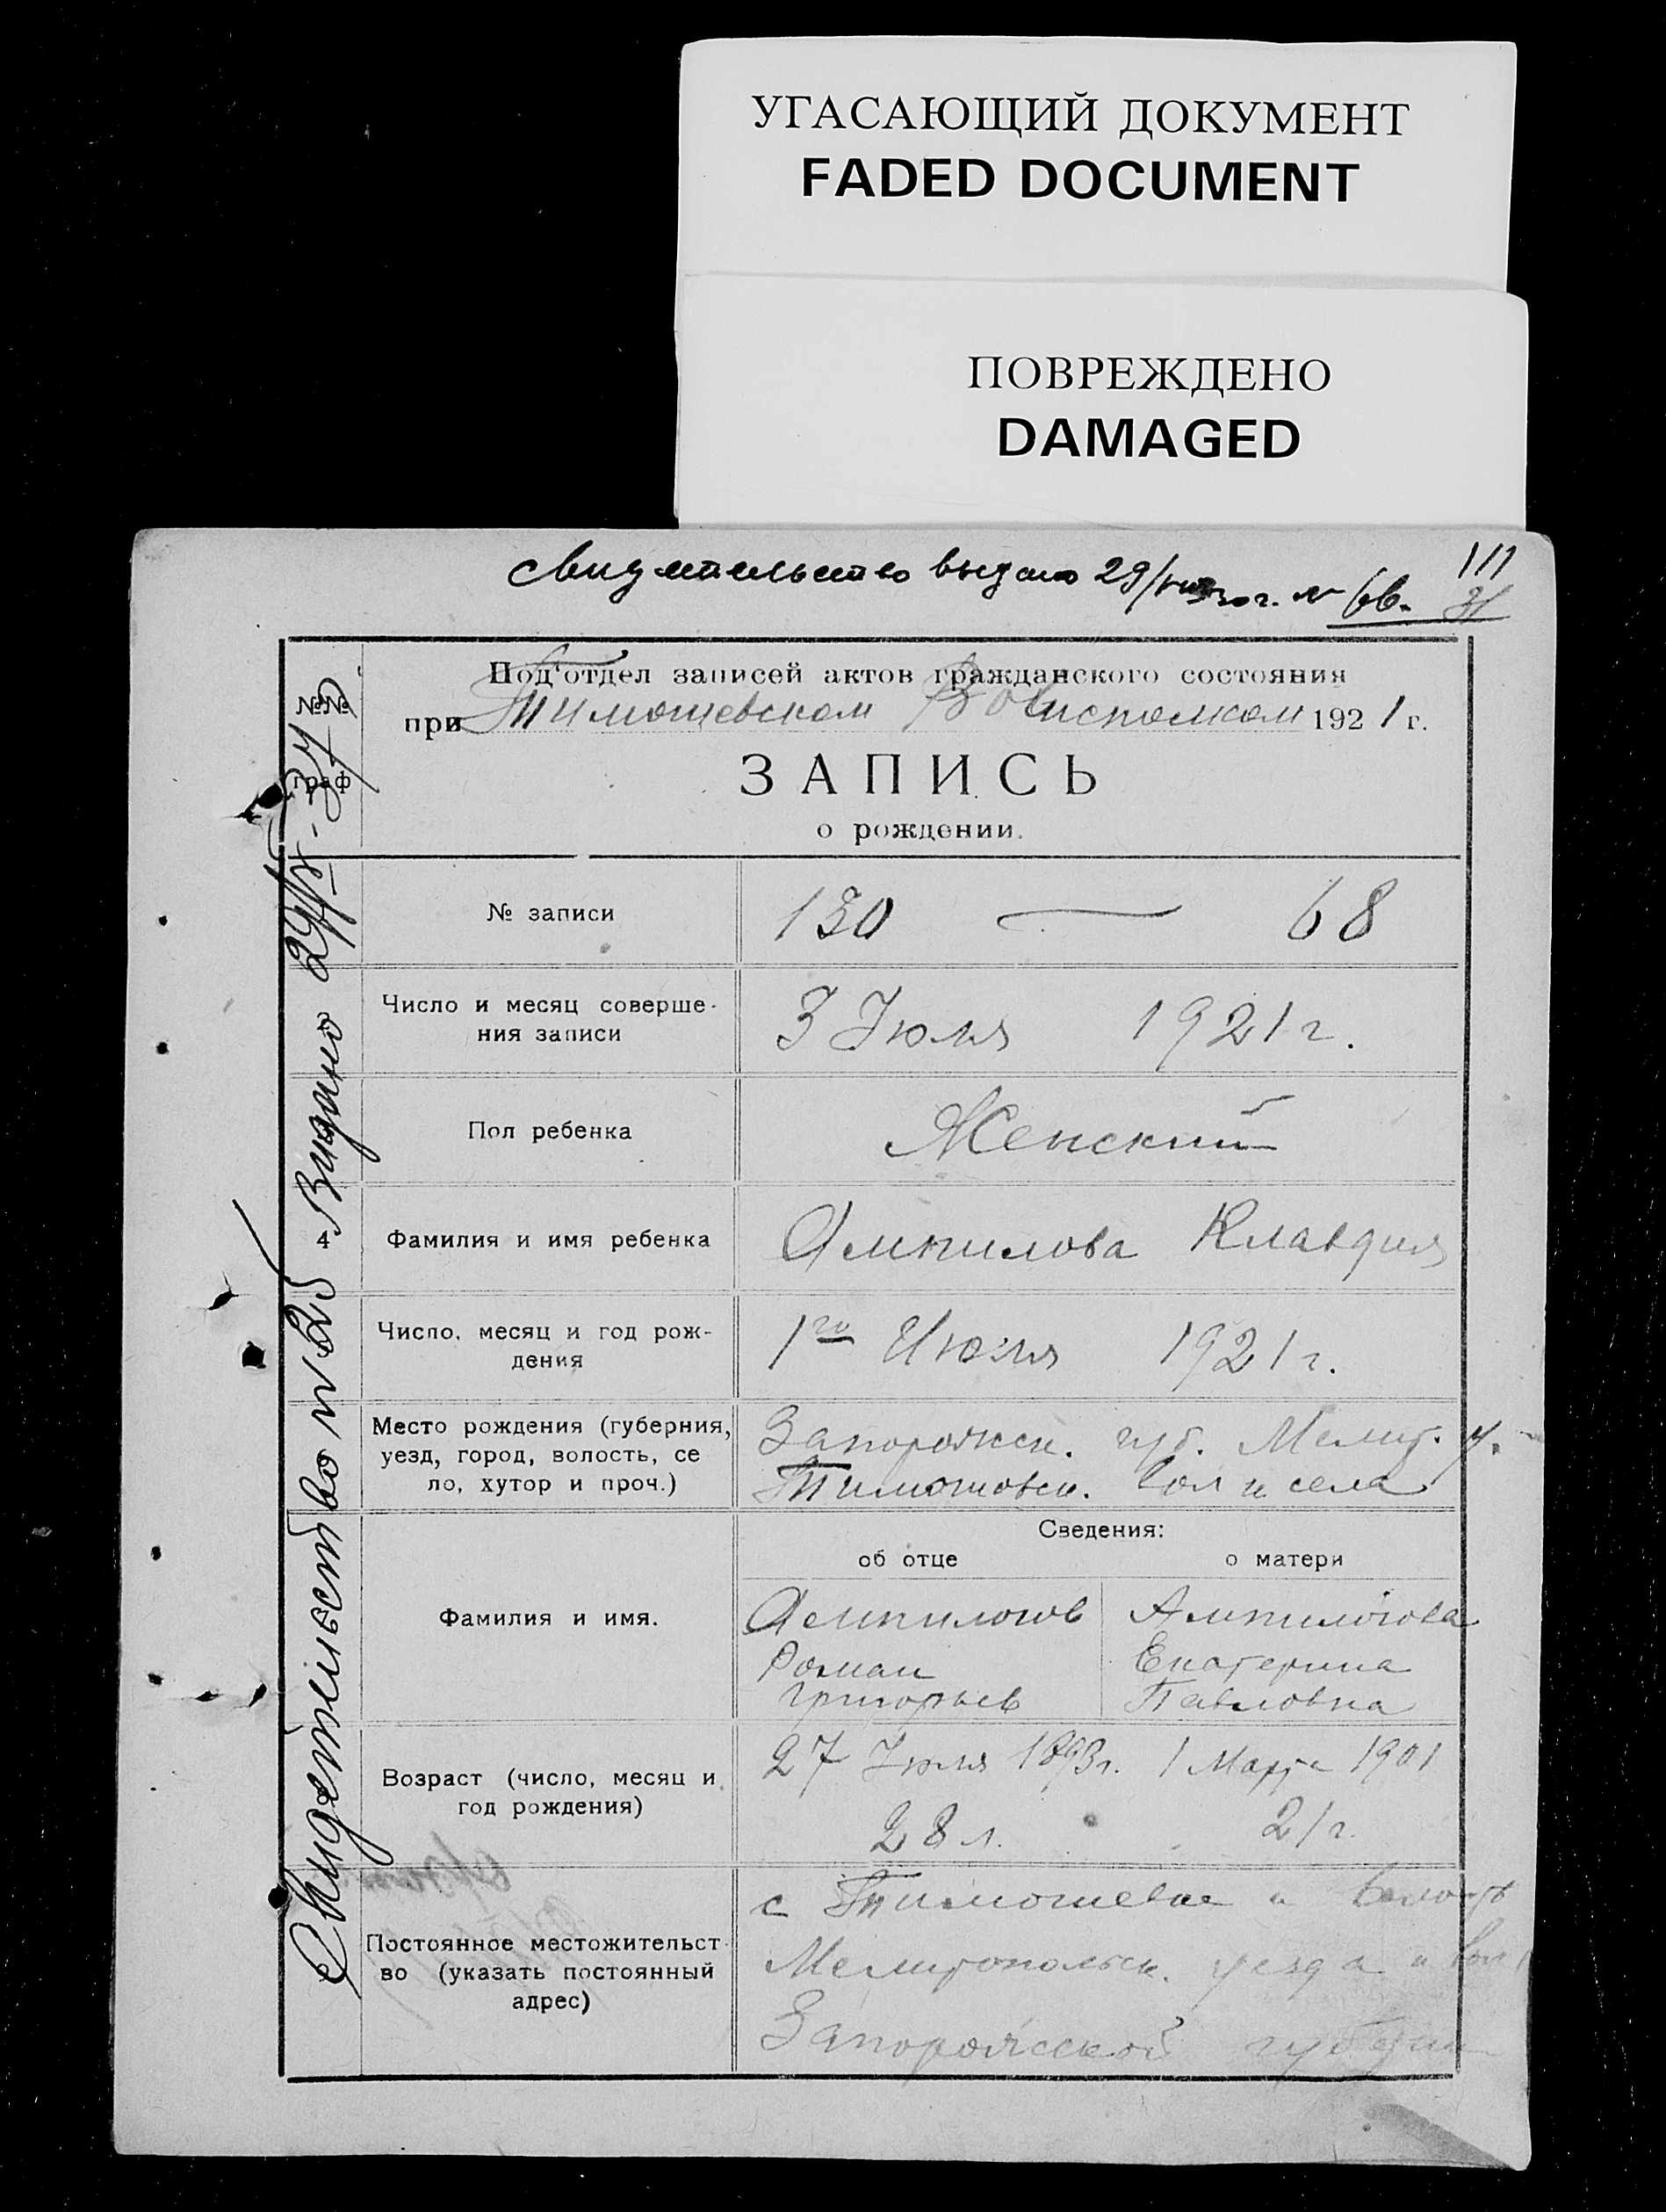 УГАСАЮЩИЙ ДОКУМЕНТ
FADED DOCUMENT
ПОВРЕЖДЕНО
DAMAGED
111
31
Свидетельство выдано 29/ г. № 66.
№№ граф
Под'отдел записей актов гражданского состояния
при Тимошевском Волисполкоме 1921 г.
ЗАПИСЬ
о рождении.
№ записи
130 — 68
Число и месяц соверше-
ния записи
3 Июля 1921 г.
Пол ребенка
Женский
4
Фамилия и имя ребенка
Ампилова Клавдия
Число, месяц и год рож-
дения
1го Июля 1921 г.
Место рождения (губерния,
уезд, город, волость, се
ло, хутор и проч.)
Запорожск. губ. Мелит. у.
Тимошовск. вол и села
Сведения:
об отце
о матери
Фамилия и имя.
Ампилогов
Роман
Григорьев
Ампилогова
Екатерина
Павловна
Возраст (число, месяц и
год рождения)
27 Июля 1893 г.
28 л.
1 Марта 1901
21 г.
Постоянное местожительст
во (указать постоянный
адрес)
с Тимошевка и волость
Мелитопольск. уезда и
Запорожской губернии
Свидетельство № 25 Видано 29/